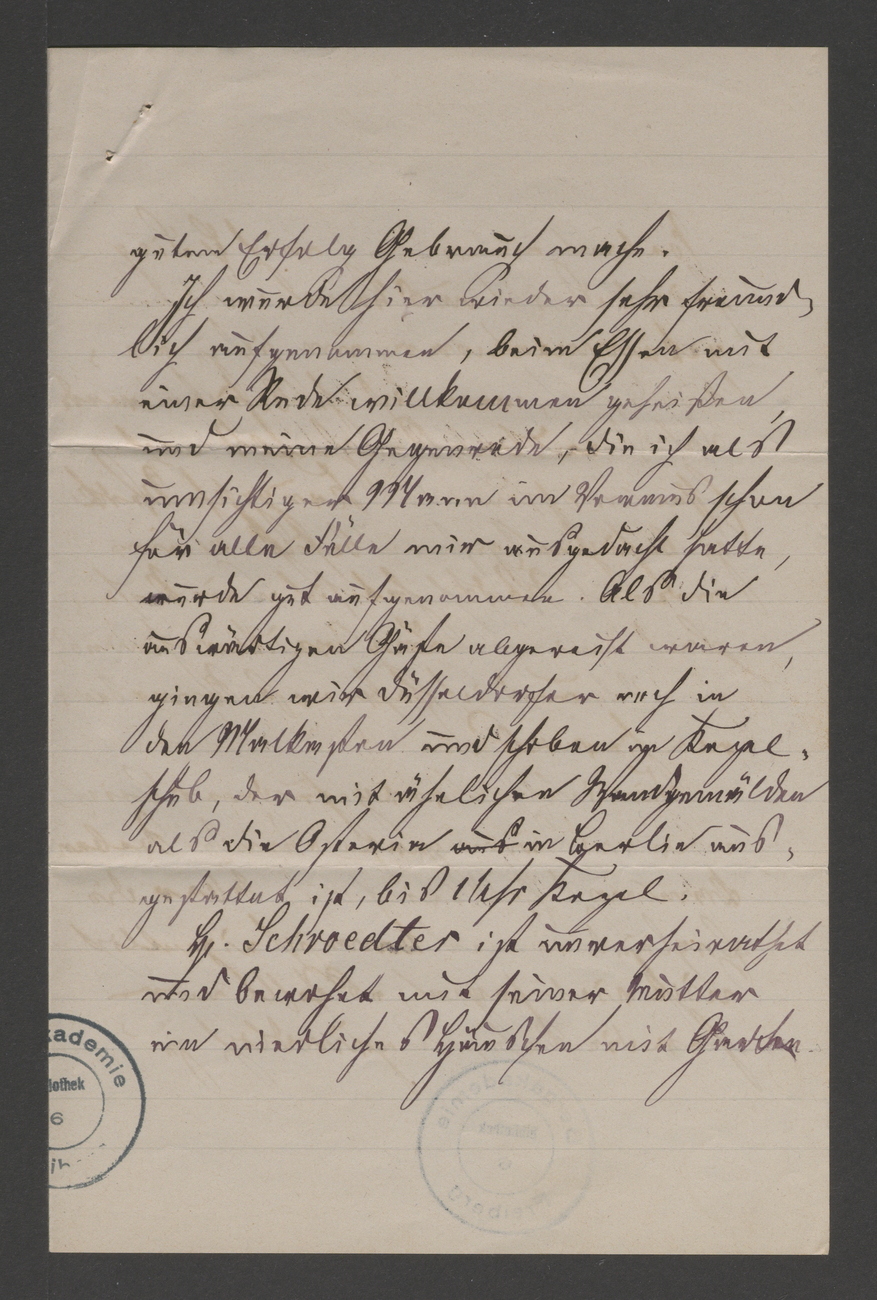 guten Erfolg Gebrauch mache.
Ich wurde hier wieder sehr freund-
lich aufgenommen, beim Essen mit
einer Rede willkommen geheißen,
und meine Gegenrede, die ich als
umsichtiger Mann im Voraus schon
für alle Fälle mir ausgedacht hatte,
wurde gut aufgenommen. Als die
auswärtigen Gäste abgereist waren,
gingen wir Düsseldorfer noch in
den Malkasten und schoben in Kegel-
schub, der mit ähnlichen Wandgemälden
als die Osteria aus in Berlin aus-
gestattet ist, bis 1 Uhr Kegel.
H. Schroedter ist unverheirathet
und bewohnt mit seiner Mutter
ein niedliches Häuschen mit Garten.
kademie
iothek
6